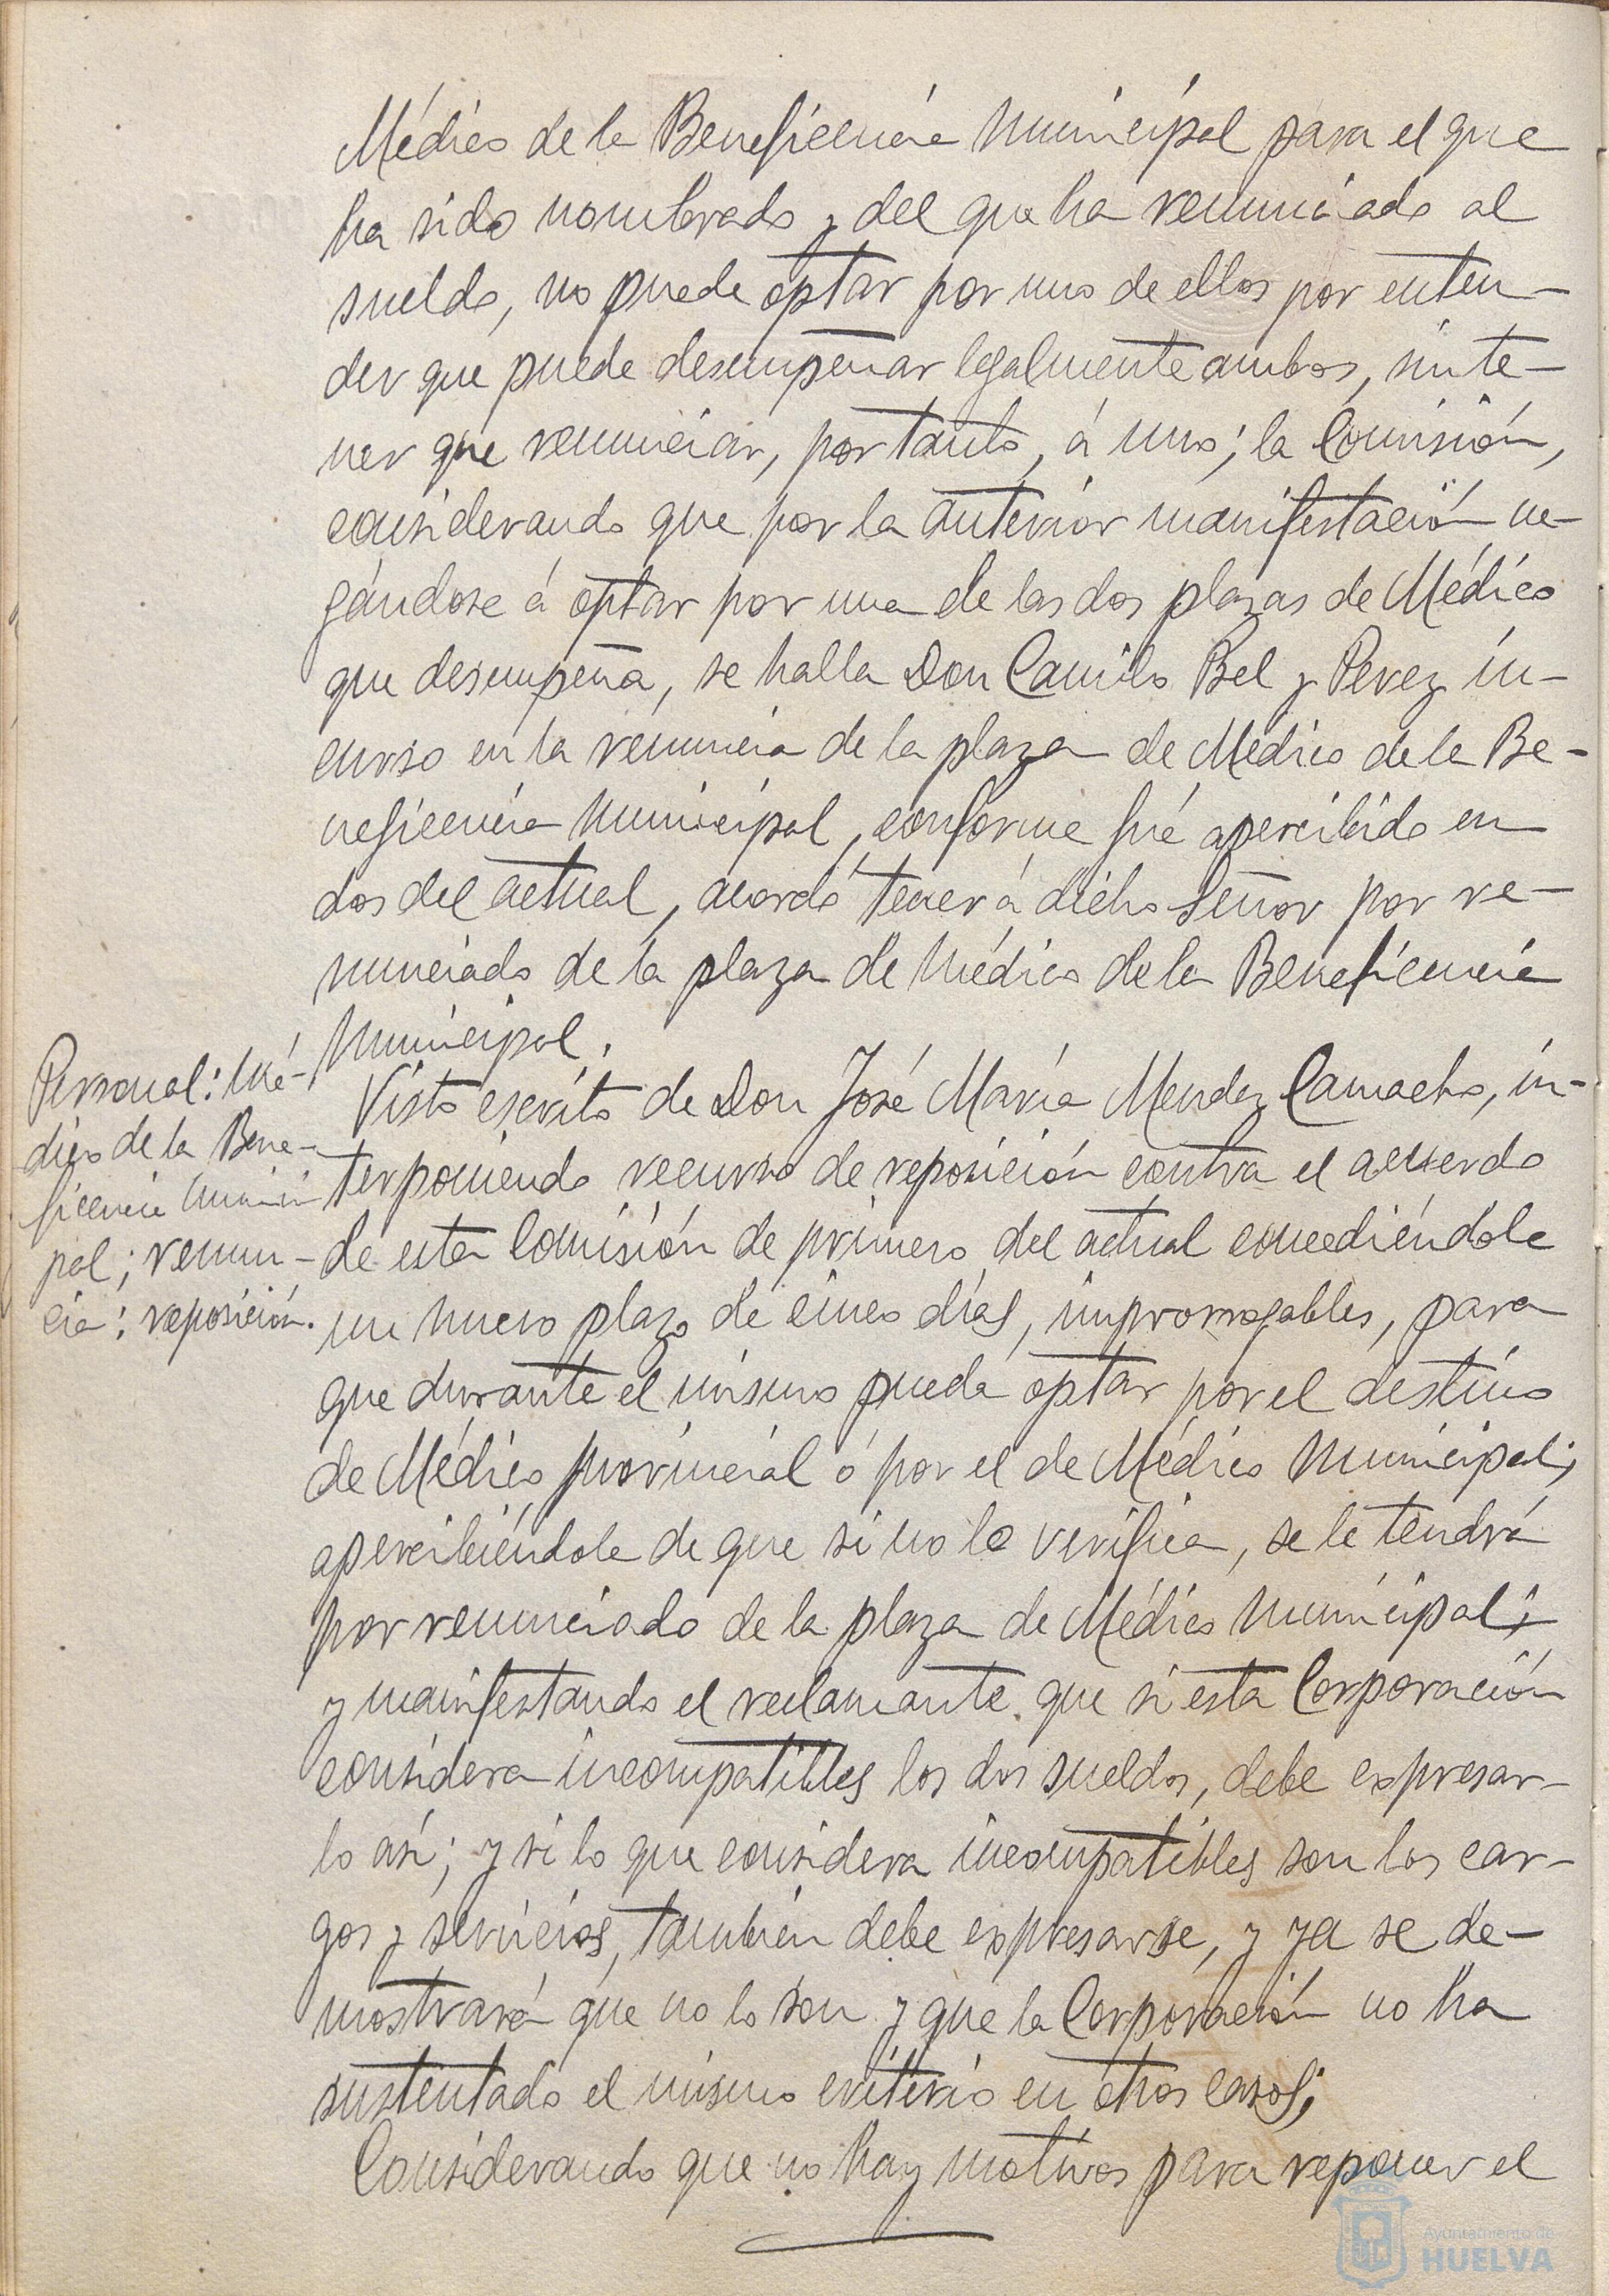 Médico de la Beneficencia Municipal para el que
ha sido nombrado y del que ha renunciado al
sueldo, no puede optar por uno de ellos por enten-
der que puede desempeñar legalmente ambos, sin te-
ner que renunciar, por tanto, á uno; la Comisión,
considerando que por la anterior manifestación ne-
gándose á optar por una de las dos plazas de Médico
que desempeña, se halla Don Camilo Bel y Perez in-
curso en la renuncia de la plaza de Médico de la Be-
neficencia Municipal, conforme fué apercibido en
dos del actual, acordó tener á dicho Señor por re-
nunciado de la plaza de Médico de la Beneficencia
Municipal.
Personal: Mé-
dico de la Bene-
ficencia Munici
pal; renun-
cia: reposición.
Visto escrito de Don José María Mendez Camacho, in-
terponiendo recurso de reposición contra el acuerdo
de esta Comisión de primero del actual concediéndole
un nuevo plazo de cinco días, improrrogables, para
que durante el mismo pueda optar por el destino
de Médico provincial ó por el de Médico Municipal;
apercibiéndole de que si no lo verifica, se le tendrá
por renunciado de la plaza de Médico Municipal;
y manifestando el reclamante que si esta Corporación
considera incompatibles los dos sueldos, debe expresar-
lo así; y si lo que considera incompatibles son los car-
gos y servicios, también debe expresarse, y ya se de-
mostrará que no lo son y que la Corporación no ha
sustentado el mismo criterio en otros casos;
Considerando que no hay motivos para reponer el
Ayuntamiento de
HUELVA